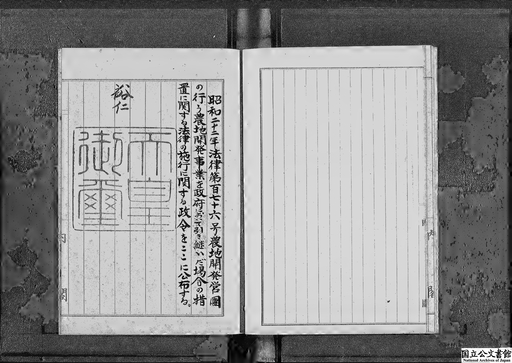 昭和二十二年法律第百七十六号農地開発営團
の行う農地開発事業を政府において引き継いだ場合の措
置に関する法律の施行に関する政令をここに公布する。
裕仁
天皇
御璽
内
閣
内
閣
国立公文書館
National Archives of Japan